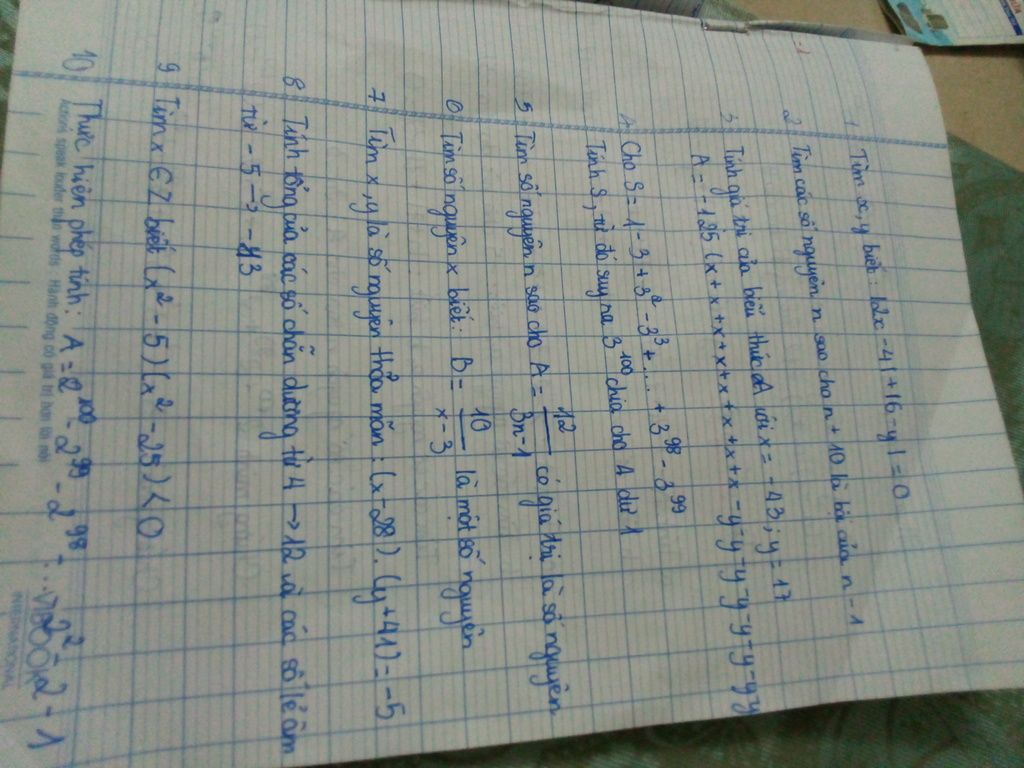 1 Tìm x, y biết: |2x - 4| + |6 - y| = 0
2 Tìm các số nguyên n sao cho n + 10 là bội của n - 1
3 Tính giá trị của biểu thức A với x = - 43; y = 17
A = - 125 (x + x + x + x + x + x + x - y - y - y - y - y - y - y
4 Cho S = 1 - 3 + 3² - 3³ + .... + 3⁹⁸ - 3⁹⁹
Tính S, từ đó suy ra 3¹⁰⁰ chia cho 4 dư 1
5 Tìm số nguyên n sao cho A = 12/(3n - 1) có giá trị là số nguyên
6 Tìm số nguyên x biết: B = 10/(x - 3) là một số nguyên
7 Tìm x, y là số nguyên thỏa mãn: (x - 28). (y + 41) = - 5
8 Tính tổng của các số chẵn dương từ 4 → 12 và các số lẻ âm
từ - 5 → - 13
9 Tìm x ∈ Z biết (x² - 5)(x² - 25) < 0
10 Thực hiện phép tính: A = 2¹⁰⁰ - 2⁹⁹ - 2⁹⁸ - ... - 2² - 2 - 1
Actions speak louder than words - Hành động có giá trị hơn lời nói